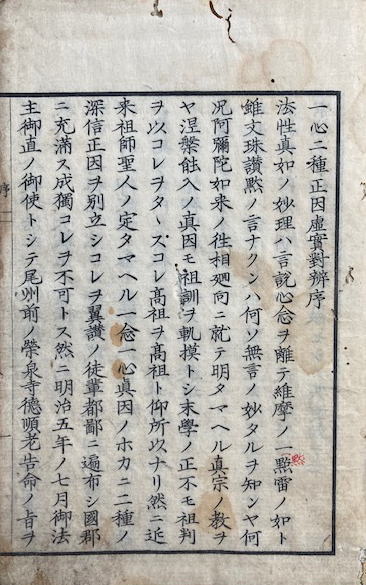 一心二種正因虛實對辨序
法性真如ノ妙理ハ言説心念ヲ離テ維摩ノ一點雷ノ如ト
雖文珠讃黙ノ言ナクンハ何ソ無言ノ妙タルヲ知ンヤ何
况阿彌陀如来ノ徃相廻向ニ就テ明タマヘル真宗ノ教ヲ
ヤ涅槃蝕入ノ真因モ祖訓ヲ軌摸トシ末學ノ正不モ祖判
ヲ以コレヲタヽズコレ高祖ヲ高祖ト仰所以ナリ然ニ近
来祖師聖人ノ定タマヘル一念一心真因ノホカニ二種ノ
深信正因ヲ別立シコレヲ翼讃ノ徒輩都鄙ニ遍布シ國郡
ニ充滿ス成獨コレヲ不可トス然ニ明治五年ノ七月御法
主御直ノ御使トシテ尾州前ノ榮泉寺德順老告命ノ旨ヲ
序
黙